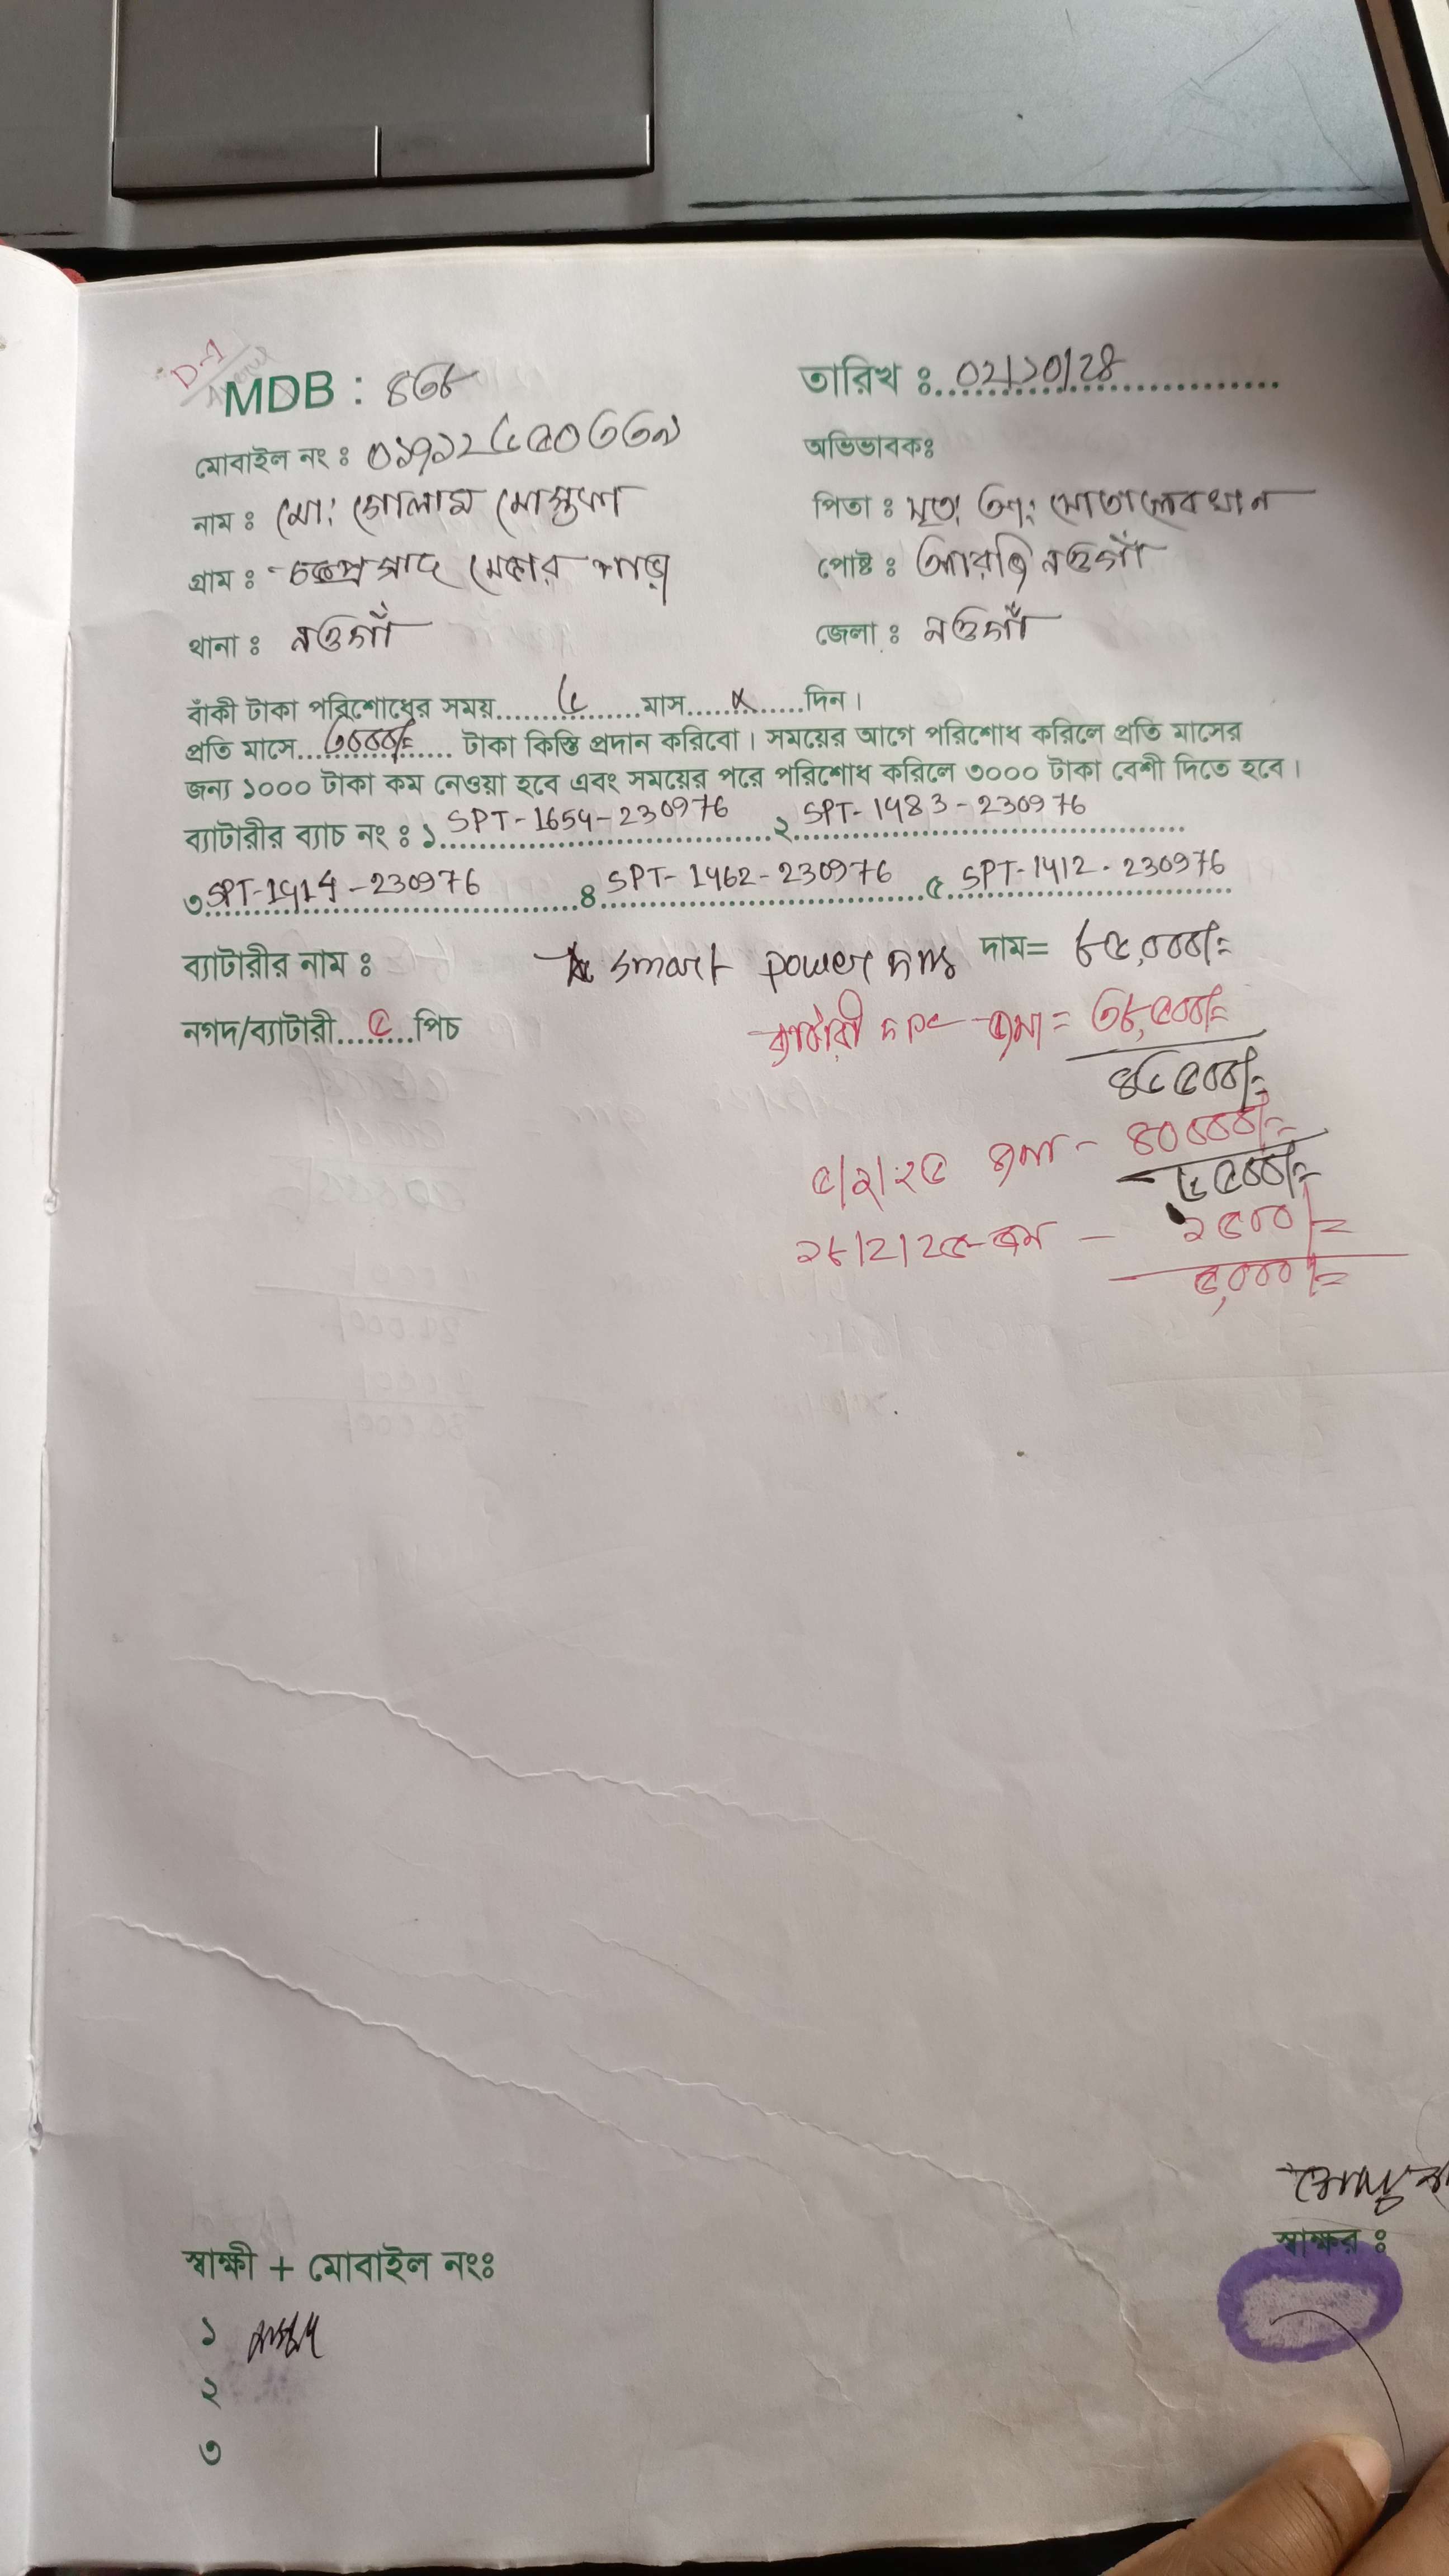 D-1
MDB : ৪৩৮
তারিখ ঃ ০২/১০/২৪
মোবাইল নং ঃ ০১৭১২৬৫০৩৩৯
অভিভাবকঃ
নাম ঃ মো: গোলাম মোস্তফা
পিতা ঃ মৃত: আ: মোতালেব খান
গ্রাম ঃ
পোষ্ট ঃ আরজি নওগাঁ
থানা ঃ নওগাঁ
জেলা ঃ নওগাঁ
বাঁকী টাকা পরিশোধের সময়..........৬..........মাস......x......দিন।
প্রতি মাসে...৩০০০/=... টাকা কিস্তি প্রদান করিবো। সময়ের আগে পরিশোধ করিলে প্রতি মাসের
জন্য ১০০০ টাকা কম নেওয়া হবে এবং সময়ের পরে পরিশোধ করিলে ৩০০০ টাকা বেশী দিতে হবে।
ব্যাটারীর ব্যাচ নং ঃ ১ SPT-1654-230976 ২ SPT-1483-230976
৩ SPT-1414-230976 ৪ SPT-1462-230976 ৫ SPT-1412-230976
ব্যাটারীর নাম ঃ smart power দাম= ৮৫,০০০/=
নগদ/ব্যাটারী...৫...পিচ
ব্যাটারী জমা = ৩৮,৫০০/=
৪৬৫০০/=
৫/২/২৫ জমা - ৪০০০০/=
৬৫০০/=
২৮/2/2৫ জমা - ১৫০০/=
৫,০০০/=
স্বাক্ষর ঃ
স্বাক্ষী + মোবাইল নংঃ
১
২
৩